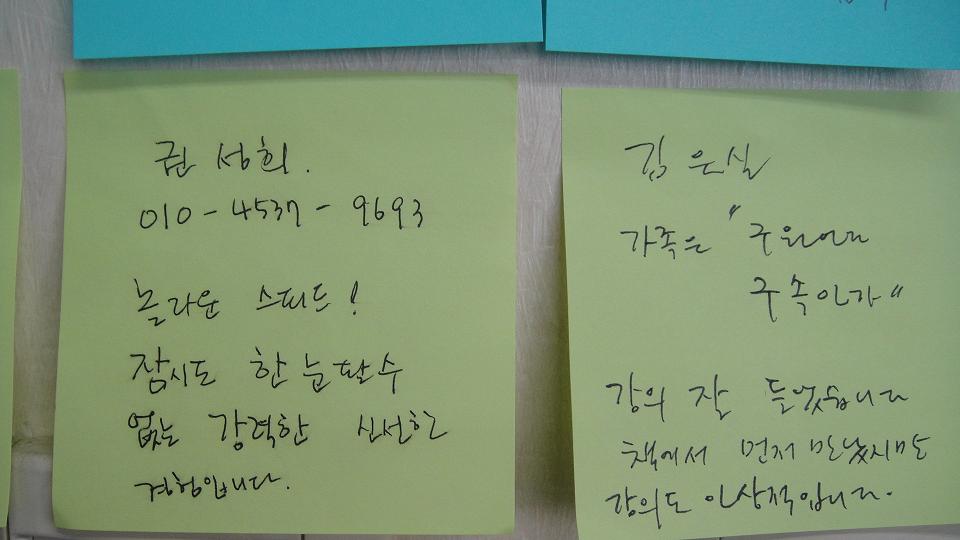 권성희.
010-4537-9693
놀라운 스피드!
잠시도 한눈팔수
없는 강력한 신선한
경험입니다.
김은실
가족은 "구원이다
구속인가"
강의 잘 들었습니다
책에서 먼저 만났지만
강의도 인상적입니다.